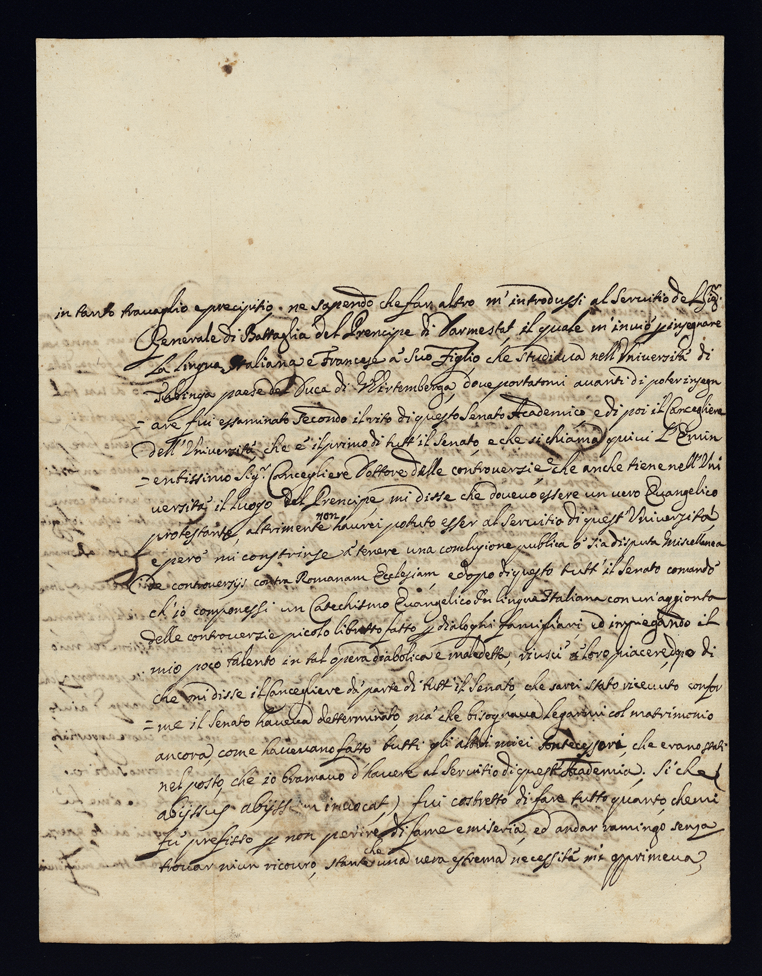 in tanto travaglio e precipitio. ne sapendo che far altro m'introdussi al Servitio del Sig.r
Generale di Battaglia del Prencipe di Darmestet il quale m'inviò p insegnare
la lingua Italiana e Francese a Suo Figlio che Studiava nell'Università di
Tubinga paese del Duca di Wirtemberga, dove portatomi avanti di poter insegn
= are fui essaminato secondo il rito di questo Senato Academico, e di poi il Cancegliere
dell'Università, che è il primo di tutt'il Senato, e che si chiama quivi L'Emin
= entissimo Sig.r Cancegliere Dottore delle controverzie, che anche tiene nell'Uni
versità il luogo del Prencipe, mi disse che dovevo essere un vero Evangelico
protestante, altrimente non havrei potuto esser al Servitio di quest'Università,
e però mi constrinse a tenere una conclusione publica ò sia disputa Miscellanea
de controversijs contra Romanam Ecclesiam, e dopo di questo tutt'il Senato comandò
ch'io componessi un Catechismo Evangelico in lingua Italiana con un'aggionta
delle controverzie picolo libretto fatto p dialoghi famigliari, ed impiegando il
mio poco talento in tal opera diabolica e maledetta, riuscì a loro piacere, dopo di
che mi disse il Cancegliere da parte di tutt'il Senato, che sarei stato ricevuto confor
= me il Senato haveva determinato, ma che bisognava legarmi col matrimonio
ancora, come havevano fatto tutti gli altri miei Antecessori, che erano stati
nel posto, che io bramavo d'havere al Servitio di quest'Academia. Si che (
abyssus abyssum invocat,) fui costretto di fare tutto quanto, che mi
fù prefisso p non perire di fame e miseria, ed andar ramingo senza
trovar niun ricovro, stante che una vera estrema necessità mi opprimeva,